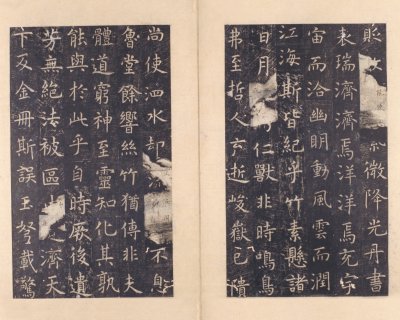 微降光丹書
表瑞濟濟焉洋洋焉充宇
宙而洽幽明動風雲而潤
江海斯皆紀乎竹素懸諸
日月仁獸非時鳴鳥
弗至哲人云逝峻嶽已隤
尚使泗水却不息
魯堂餘響絲竹猶傳非夫
體道窮神至靈知化其孰
能與於此乎自時厥後遺
芳無絕法被區濟天
下及金冊斯誤玉弩載驚